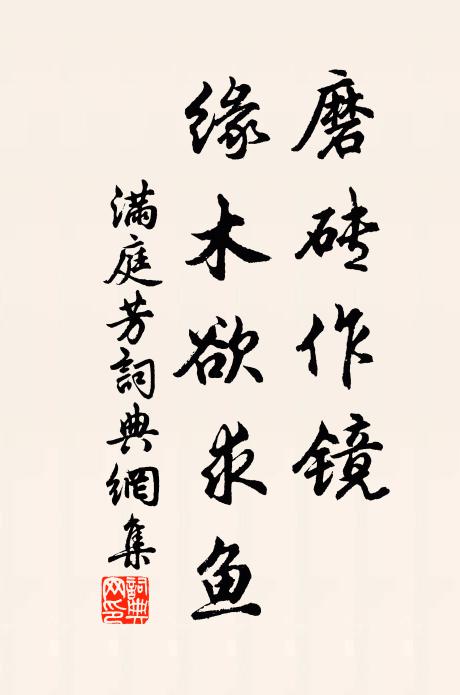 磨砖作鏡
缘木欲求鱼
滿庭芳詞典網集
詞典网印